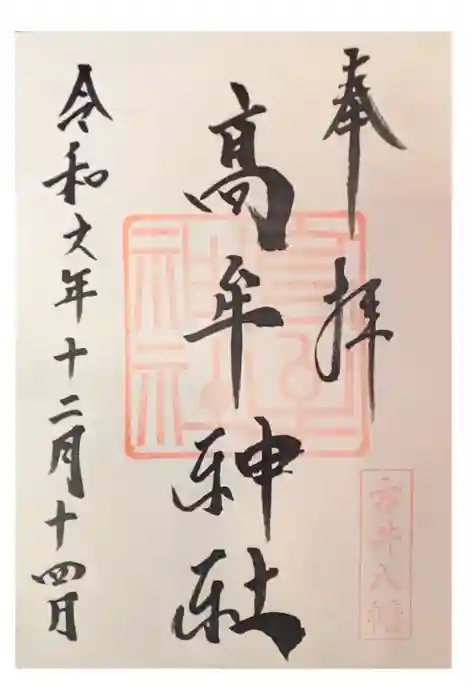 奉拝
高牟神社
令和六年十二月十四日
古井八幡